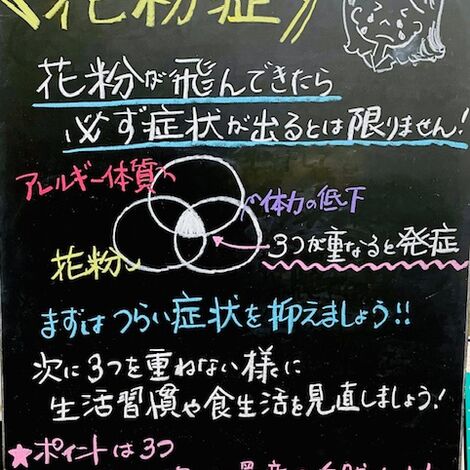 《花粉症》
花粉が飛んできたら
必ず症状が出るとは限りません!
アレルギー体質
体力の低下
花粉
3つが重なると発症
まずはつらい症状を抑えましょう!!
次に3つを重ねない様に
生活習慣や食生活を見直しましょう!
★ポイントは3つ